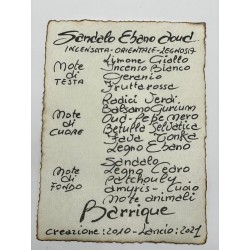 Sandalo Ebano Oud
INCENSATA - ORIENTALE - LEGNOSA
Note di TESTA
Limone Giallo
Incenso Bianco
Geranio
Frutta rossa
Note di CUORE
Radici Verdi
Balsamo Gurcum
Oud - Pepe nero
Betulla Selvatica
Fave Tonka
Legno Ebano
Note di FONDO
Sandalo
Legno Cedro
Patchouly
Amyris - Cuoio
Note animali
Barrique
Creazione: 2010 - Lancio: 2021